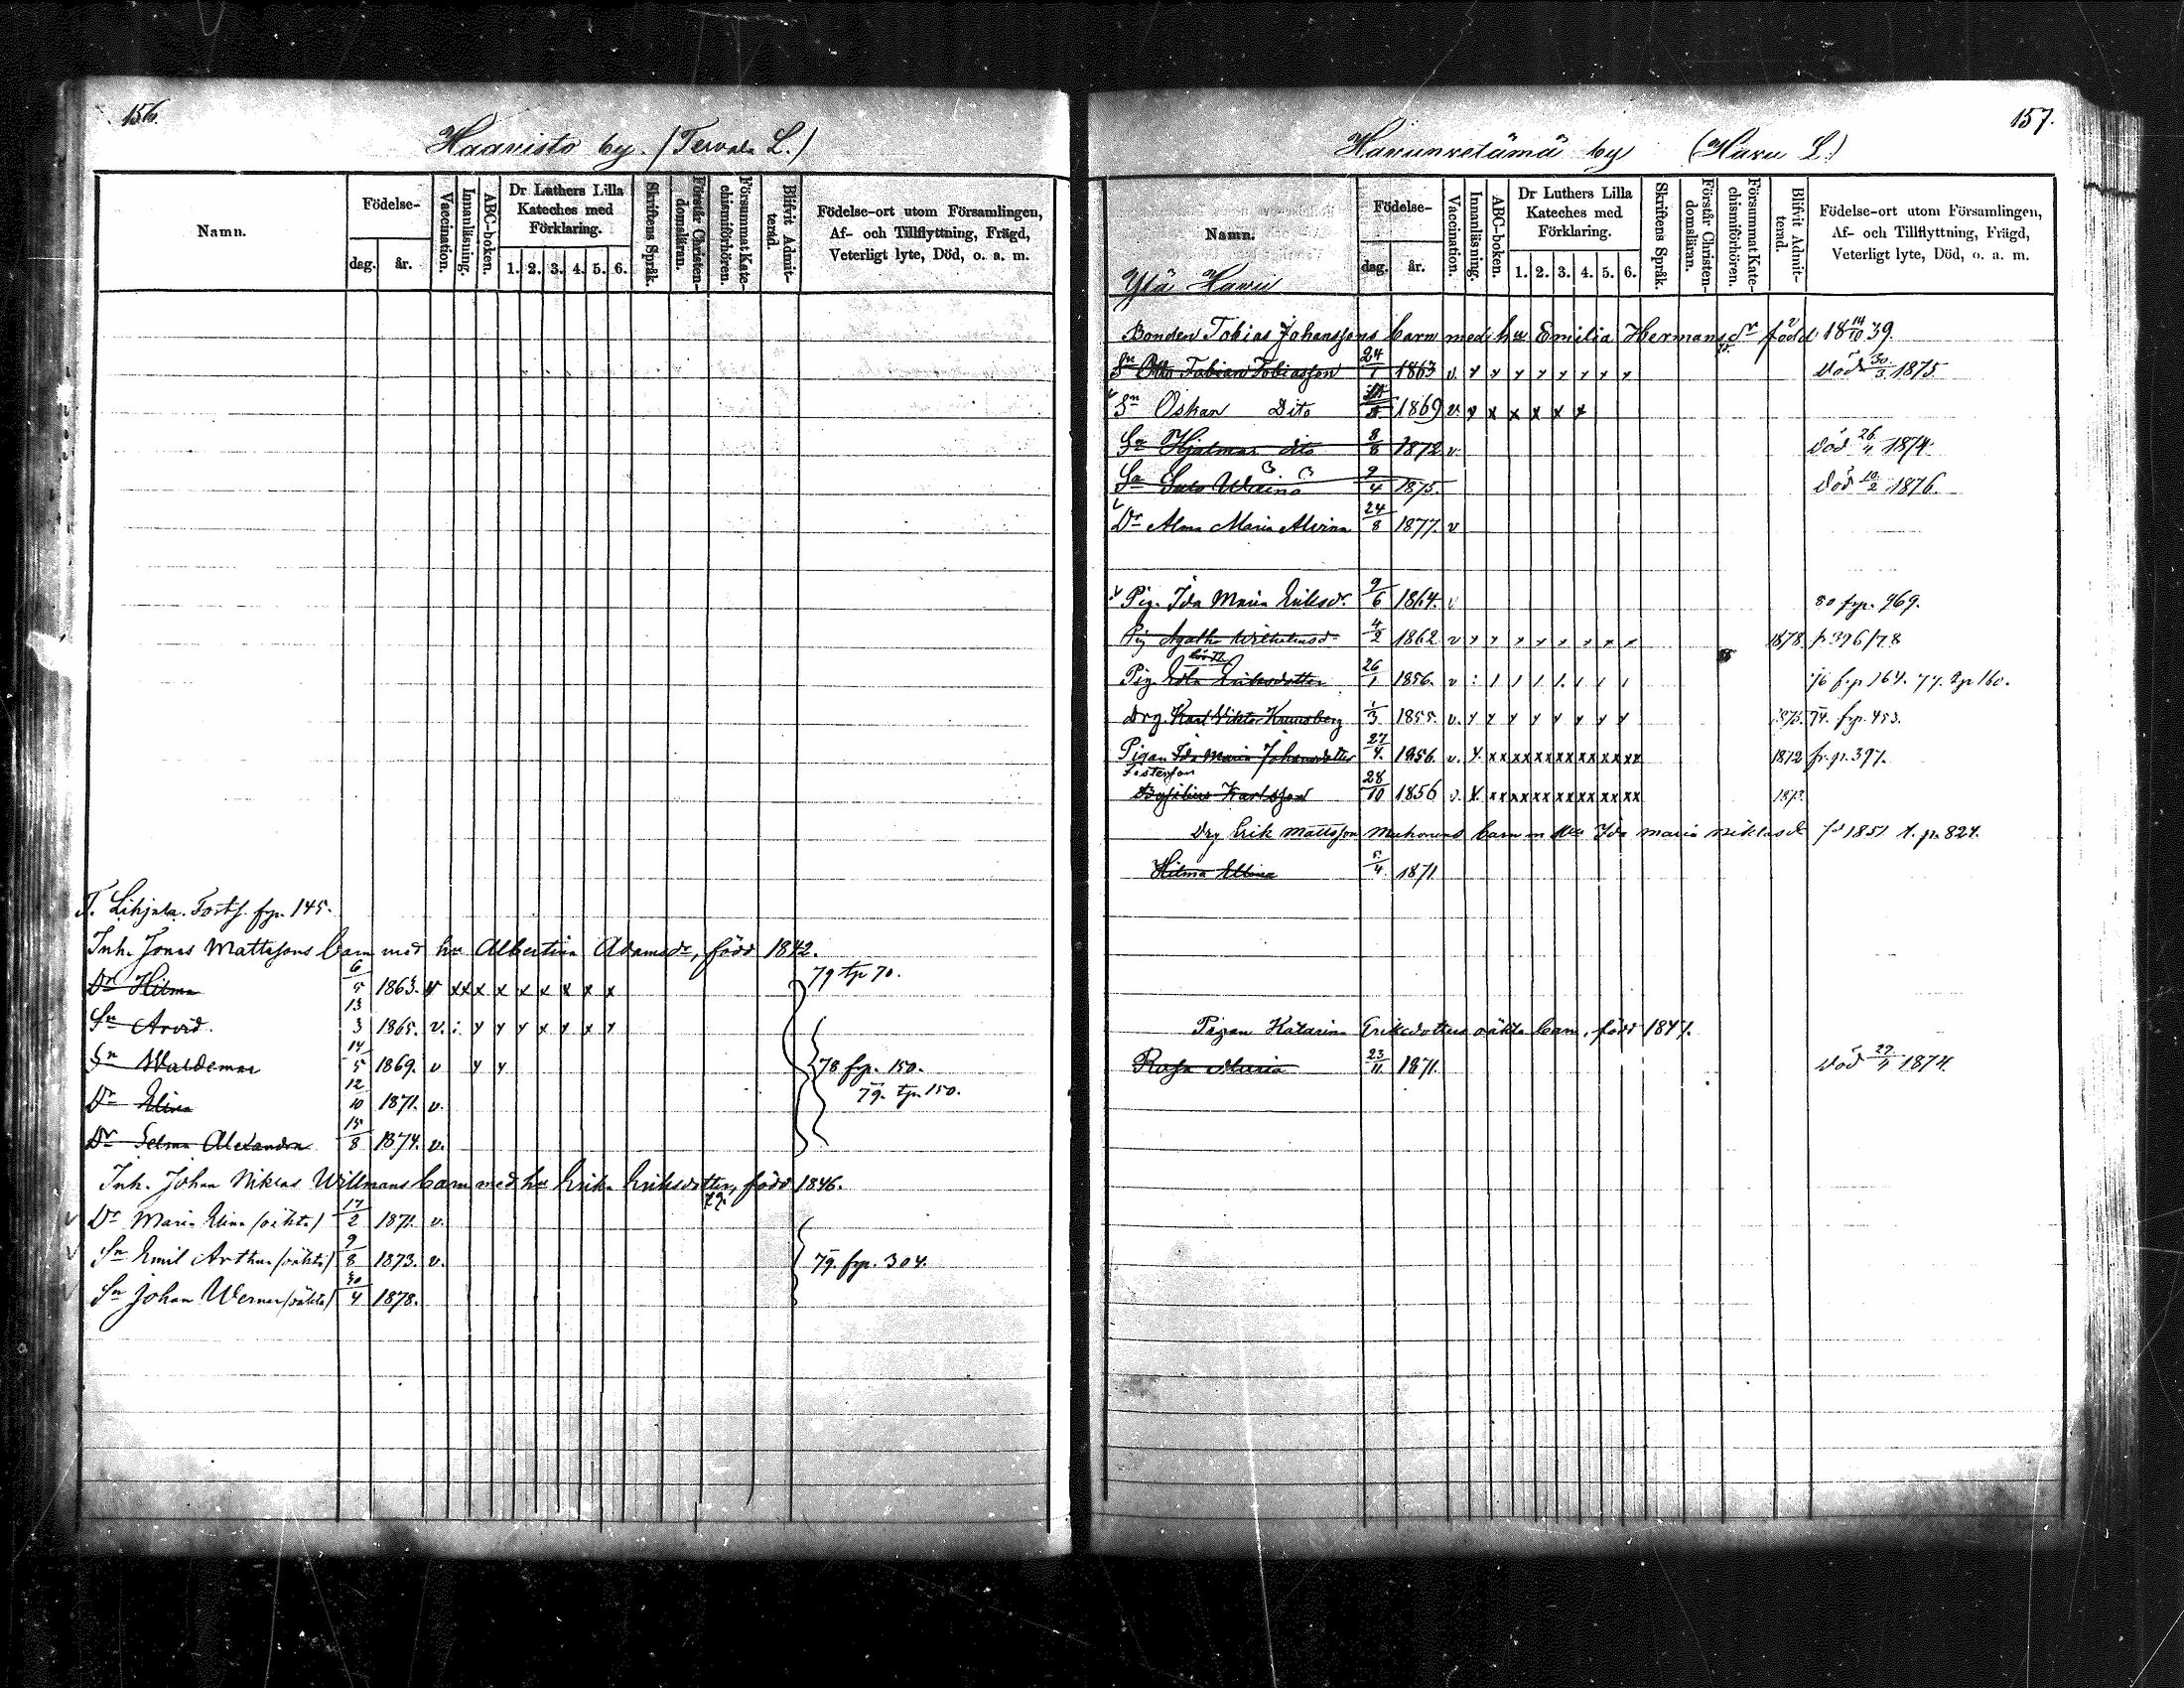 156.
Haavisto by. (Tervala L.)
Namn.
Födelse-
dag.
år.
Vaccination.
Innanläsning.
ABC-boken.
Dr Luthers Lilla Kateches med Förklaring.
1. 2. 3. 4. 5. 6.
Skriftens Språk.
Förstår Christendomsläran.
Försummat Katechismiförhören.
Blifvit Admitterad.
Födelse-ort utom Församlingen, Af- och Tillflyttning, Frägd, Veterligt lyte, Död, o. a. m.
T. Lihjala. Forts. fp. 145.
Inh. Jonas Mattssons barn med hu Albertina Adamsdr, född 1842.
Dr Hilma 6/5 1863. v xx x x x x x x x 79 tp 70.
Sn Arvid. 13/3 1865. v. : y y y x y x y
Sn Waldemar 14/5 1869. v y y 78 fp. 150.
79. tp. 150.
Dr Elina 12/10 1871. v.
Dr Selma Alexandra 15/8 1874. v.
Inh. Johan Niklas Willmans barn med hu Erika Eriksdotter, född 1846.
Dr Maria Elina (oäkta) 17/2 1871. v.
Sn Emil Arthur (oäkta) 9/8 1873. v. 79. fp. 304.
Sn Johan Werner (oäkta) 30/4 1878.
157.
Havunvetämä by (Havu L.)
Namn.
Födelse-
dag.
år.
Vaccination.
Innanläsning.
ABC-boken.
Dr Luthers Lilla Kateches med Förklaring.
1. 2. 3. 4. 5. 6.
Skriftens Språk.
Förstår Christendomsläran.
Försummat Katechismiförhören.
Blifvit Admitterad.
Födelse-ort utom Församlingen, Af- och Tillflyttning, Frägd, Veterligt lyte, Död, o. a. m.
Ylä Havu
Bonden Tobias Johanssons barn med hu Emilia Hermansdr född 18 14/10 39.
Sn Otto Fabian Tobiasson 24/1 1863 v. y y y y y y y y Död 30/3 1875
Sn Oskar Dito 1869 v. y x x x x x
Sn Hjalmar dito 8/8 1872 v. Död 26/4 1874.
Sn Wäinö 9/4 1875. Död 10/2 1876.
Dr Alma Maria Alvina 24/8 1877. v
Pig. Ida Maria Eriksdr. 9/6 1864. v 80 fp. 969.
Pig Agatha Wilhelmsdr 4/2 1862 v y y y y y y y y 1878 p 396/78
Pig. Edla Eriksdotter 26/1 1856. v : / / / / / / / 76 f.p 164. 77. tp 160.
Drg. Karl Viktor 1/3 1855. v. y y y y y y y y 1875. 74. fp. 453.
Pigan Ida Maria Johansdotter 27/4. 1856. v. y. xx xx xx xx xx xx xx 1872 fr. p. 397.
Fosterson
Karlsson 28/10 1856 v. x. xx xx xx xx xx xx xx 1873
Drg Erik Mattsson barn m hu Ida Maria Niklasdr fd 1851 t. p. 824.
Hilma Ellina 5/4. 1871
Pigan Katarina Eriksdotters oäkta barn, född 1847.
Rosa Maria 23/11. 1871. Död 27/4 1874.